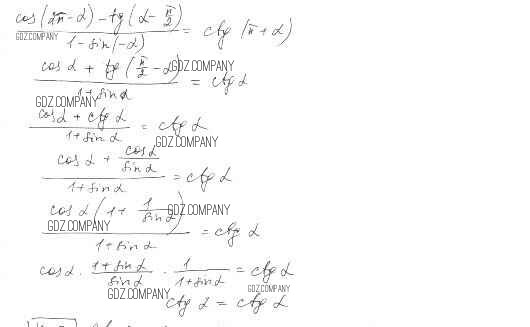 cos(2π-α) - tg(α - π/2) / 1 - sin(-α) = ctg(π+α)
GDZ.COMPANY
cos α + tg(π/2 - α) / 1 + sin α = ctg α
GDZ.COMPANY
GDZ.COMPANY
cos α + ctg α / 1 + sin α = ctg α
GDZ.COMPANY
cos α + cos α / sin α / 1 + sin α = ctg α
cos α (1 + 1 / sin α) / 1 + sin α = ctg α
GDZ.COMPANY
GDZ.COMPANY
cos α · 1 + sin α / sin α · 1 / 1 + sin α = ctg α
GDZ.COMPANY
GDZ.COMPANY
ctg α = ctg α